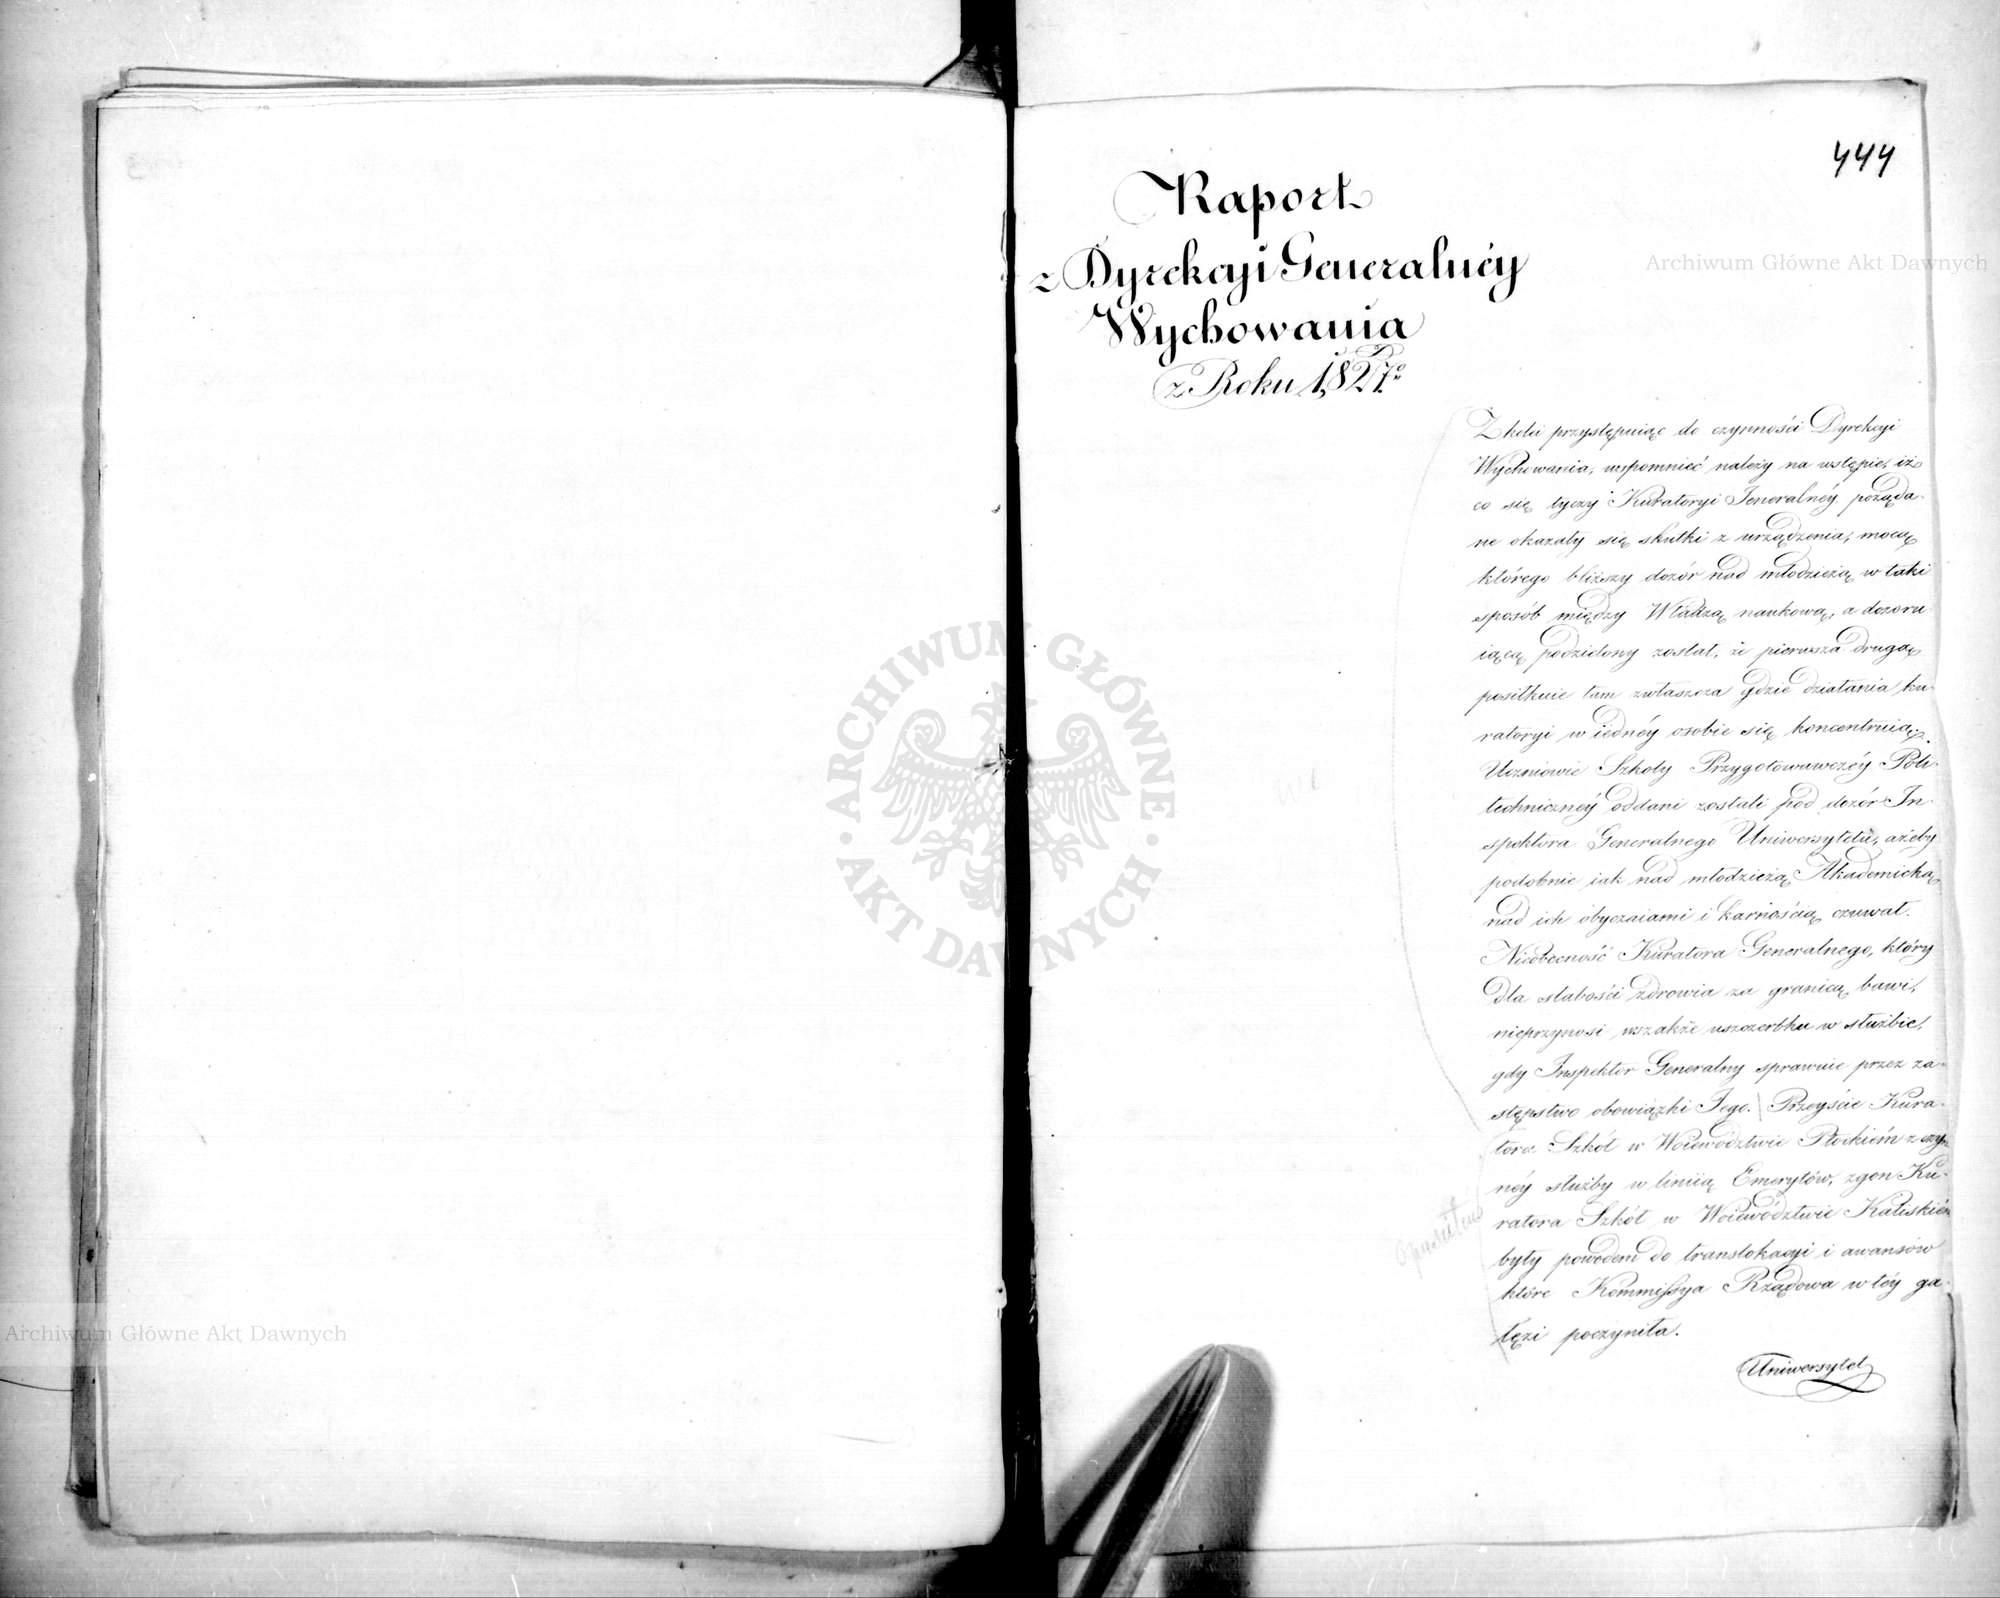 444
Raport
z Dyrekcyi Generalnéy
Wychowania
z Roku 1827º
Z kolei przystępuiąc do czynności Dyrekcyi
Wychowania, wspomnieć należy na wstępie, iż
co się tyczy Kuratoryi Jeneralnéy, pożąda-
ne okazały się skutki z urządzenia, mocą
którego bliższy dozór nad młodzieżą w taki
sposób między Władzą naukową, a dozoru-
iącą podzielony został, że pierwsza drugą
posiłkuie tam zwłaszcza gdzie działania ku-
ratoryi w iednéy osobie się koncentruią.
Uczniowie Szkoły Przygotowawczéy Poli-
technicznéy oddani zostali pod dozór In-
spektora Generalnego Uniwersytetu, ażeby
podobnie iak nad młodzieżą Akademicką
nad ich obyczaiami i karnością czuwał.
Nieobecność Kuratora Generalnego, który
dla słabości zdrowia za granicą bawi,
nieprzynosi wszakże uszczerbku w służbie,
gdy Inspektor Generalny sprawuie przez za-
stępstwo obowiązki Jego. Przeyście Kura-
tora Szkół w Woiewództwie Płockiém z czyn-
néy służby w liniią Emerytów, zgon Ku-
ratora Szkół w Woiewództwie Kaliskiém
były powodem do translokacyi i awansów
które Kommissya Rządowa w téy ga-
łęzi poczyniła.
opuścić
Uniwersytet
Archiwum Główne Akt Dawnych
Archiwum Główne Akt Dawnych
ARCHIWUM GŁÓWNE · AKT DAWNYCH ·